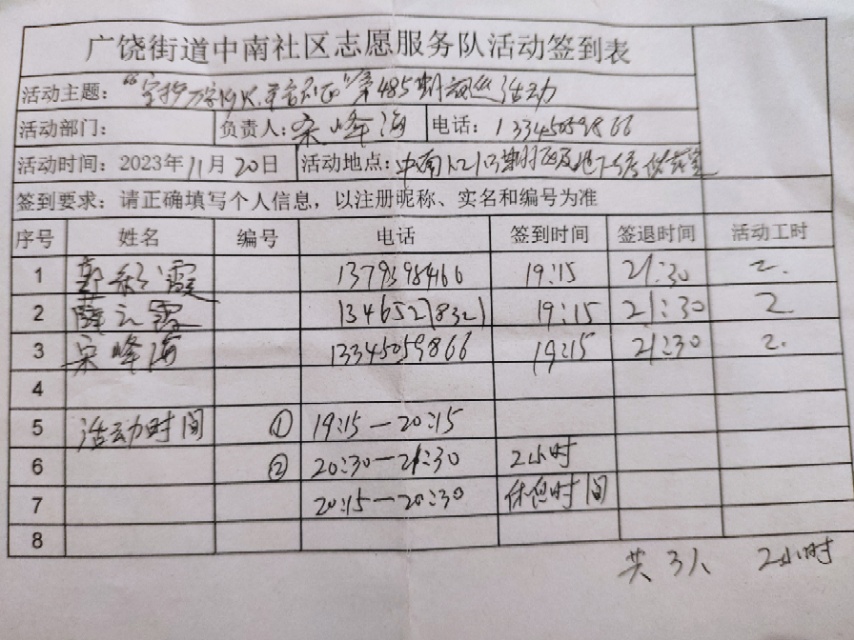 广饶街道中南社区志愿服务队活动签到表
活动主题：第485期 活动
活动部门： 负责人：宋峰海 电话：13345059866
活动时间：2023年11月20日 活动地点：中南
签到要求：请正确填写个人信息，以注册昵称、实名和编号为准
序号 姓名 编号 电话 签到时间 签退时间 活动工时
1 郭彩霞 19:15 21:30 2.
2 薛云霞 19:15 21:30 2
3 宋峰海 13345059866 19:15 21:30 2.
4
5 活动时间 ① 19:15—20:15
6 ② 20:30—21:30 2小时
7 20:15—20:30 休息时间
8
共3人 2小时